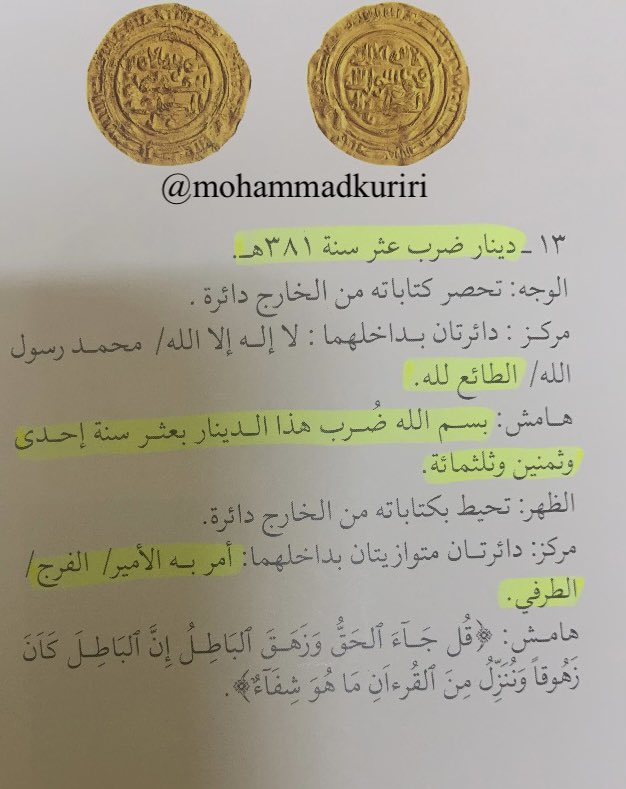 @mohammadkuriri
١٣ ـ دينار ضرب عثر سنة ٣٨١هـ.
الوجه: تحصر كتاباته من الخارج دائرة .
مركـز : دائرتان بـداخلهما : لا إلـه إلا الله/ محمـد رسول
الله/ الطائع لله.
هـامش: بسـم الله ضُـرب هذا الـدينار بعثـر سنة إحـدى
وثمنين وثلثمائة.
الظهر: تحيط بكتاباته من الخارج دائرة.
مركز: دائرتـان متوازيتان بداخلهما: أمر بـه الأمير/ الفرج/
الطرفي.
هامـش: ﴿قُل جَـآءَ ٱلحَقُّ وَزَهَـقَ ٱلبَاطِـلُ إِنَّ ٱلبَاطِـلَ كَـانَ
زَهُوقاً وَنُنَزِّلُ مِنَ ٱلقُرءَانِ مَا هُوَ شِفَآءٌ﴾.